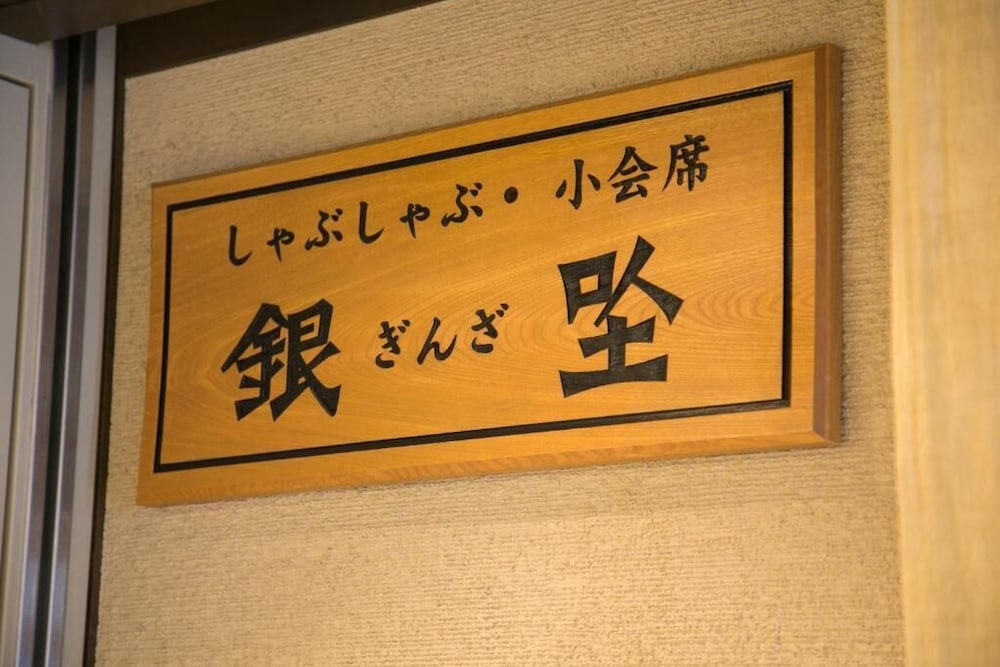 しゃぶしゃぶ・小会席
銀 ぎんざ 㘴